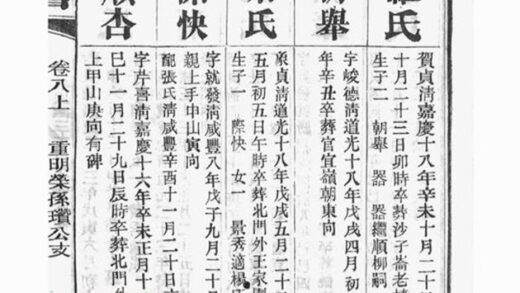 氏
賀貞清嘉慶十八年辛未十月二十
十月二十三日卯時卒葬沙子崙老
生子二 朝舉 器 器繼順柳嗣
舉
字峻德清道光十八年戊戌四月初
年辛丑卒葬官官嶺朝東向
氏
象貞清道光十八年戊戌五月二十
五月初五日午時卒葬北門外王家園
生子一 際快 女一 景秀適楊
快
字就發清咸豐八年戊子九月二十
親上手申山寅向
配張氏清咸豐辛酉十一月二十日
順杏
字芹喜清嘉慶十六年卒未正月十
巳十一月二十九日辰時卒葬北門外
上甲山庚向有碑
卷八上 重明榮孫瓚公支